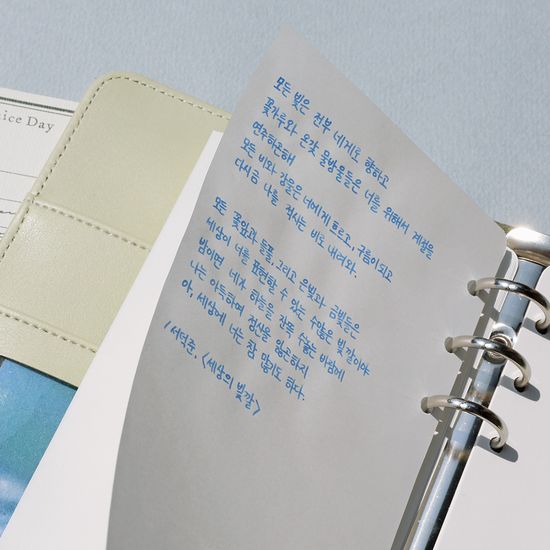 ice Day
모든 빛은 전부 네게로 향하고
꽃가루와 온갖 물방울들은 너를 위해서 계절을
연주하곤해
모든 비와 강물은 너에게 흐르고, 구름이 되고
다시금 나를 적시는 비로 내려와.
모든 꽃잎과 들풀, 그리고 은빛과 금빛들은
세상이 너를 표현할 수 있는 수많은 빛깔이야
밤이면 네가 하늘을 잔뜩 수놓은 바람에
나는 아득하여 정신을 잃곤하지
아, 세상에 너는 참 많기도 하다.
/ 서덕준, <세상의 빛깔>